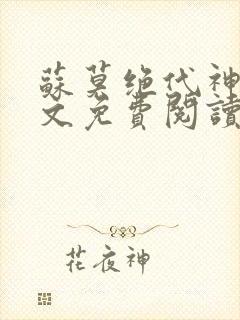 蘇莫絶代神
文免費閱讀
花夜神